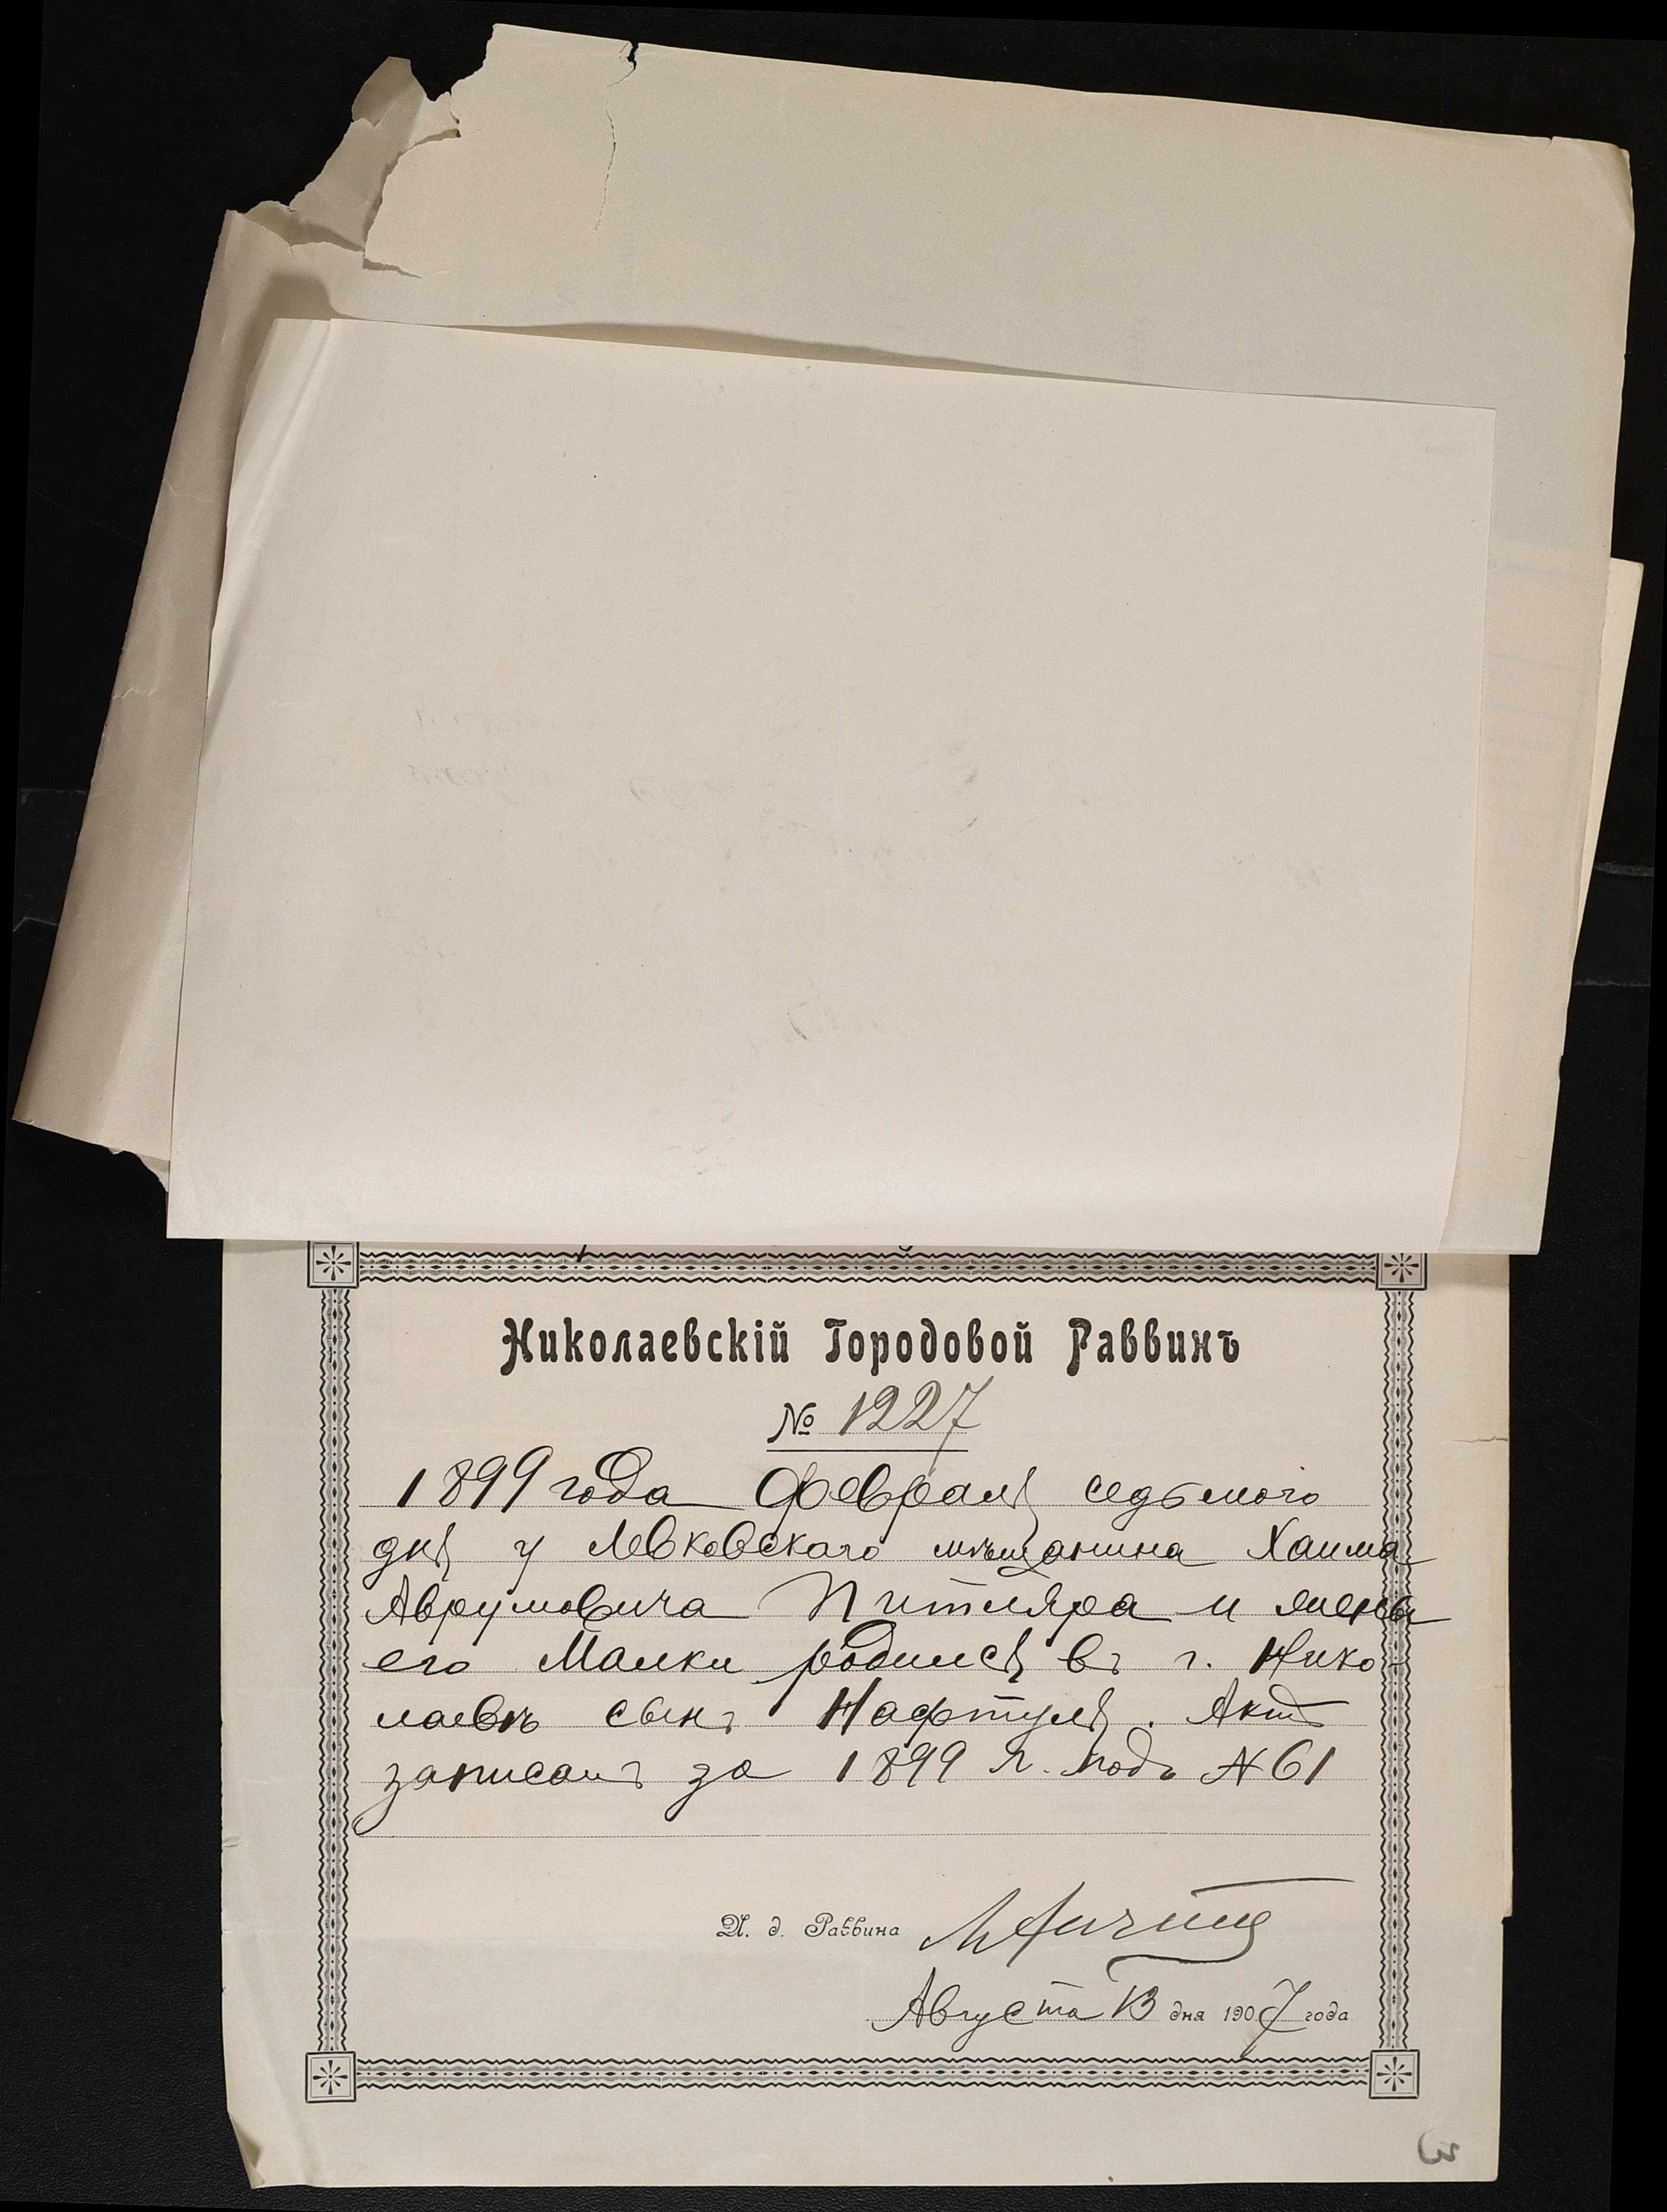 Николаевскій Городовой Раввинъ
№ 1227
1899 года Февраля седьмого
дня у Левковскаго мѣщанина Хаима
Аврумовича Питляра и жены
его Малки родился въ г. Нико-
лаевѣ сынъ Нафтуля. Актъ
записанъ за 1899 г. подъ № 61
И. д. Раввина
Августа 13 дня 1907 года
3